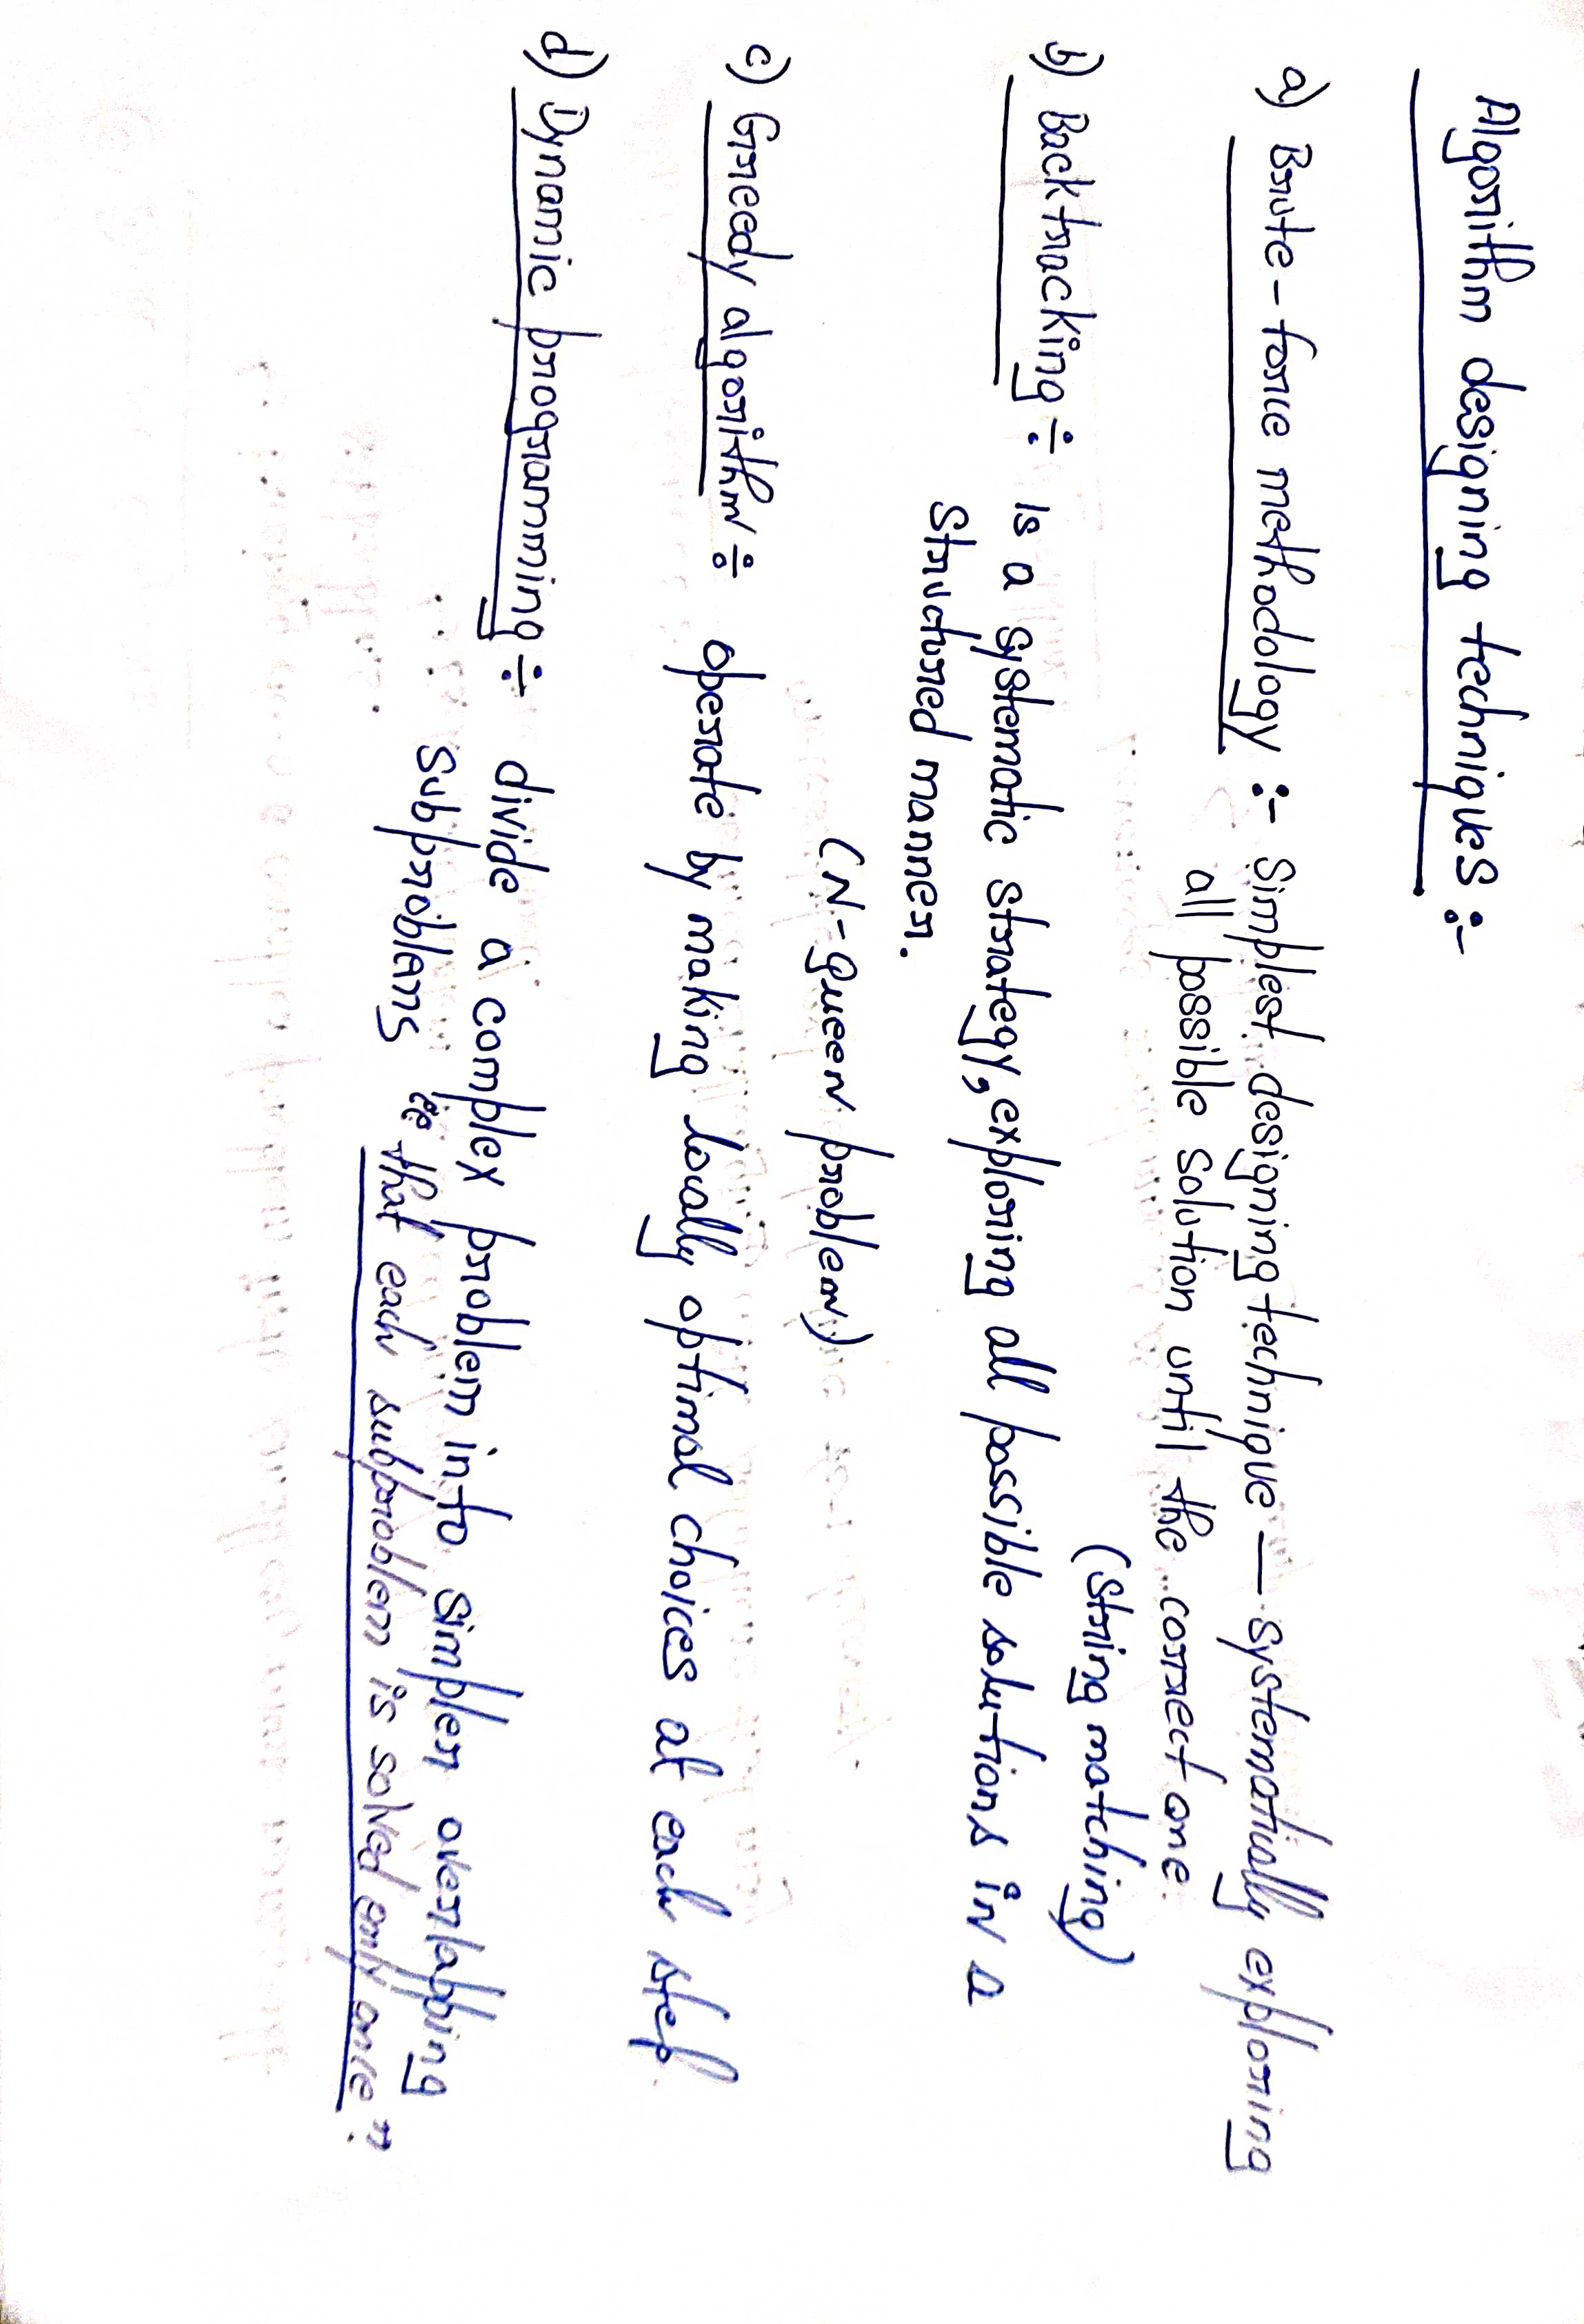 Algorithm designing techniques :-
a) Brute-force methodology :- Simplest designing technique — systematically exploring
all possible solution until the correct one.
(String matching)
b) Backtracking ÷ is a systematic strategy, exploring all possible solutions in a
structured manner.
(N-Queen problem)
c) Greedy algorithm ÷ operate by making locally optimal choices at each step.
d) Dynamic programming ÷ divide a complex problem into simpler overlapping
subproblems “that each subproblem is solved only once”.